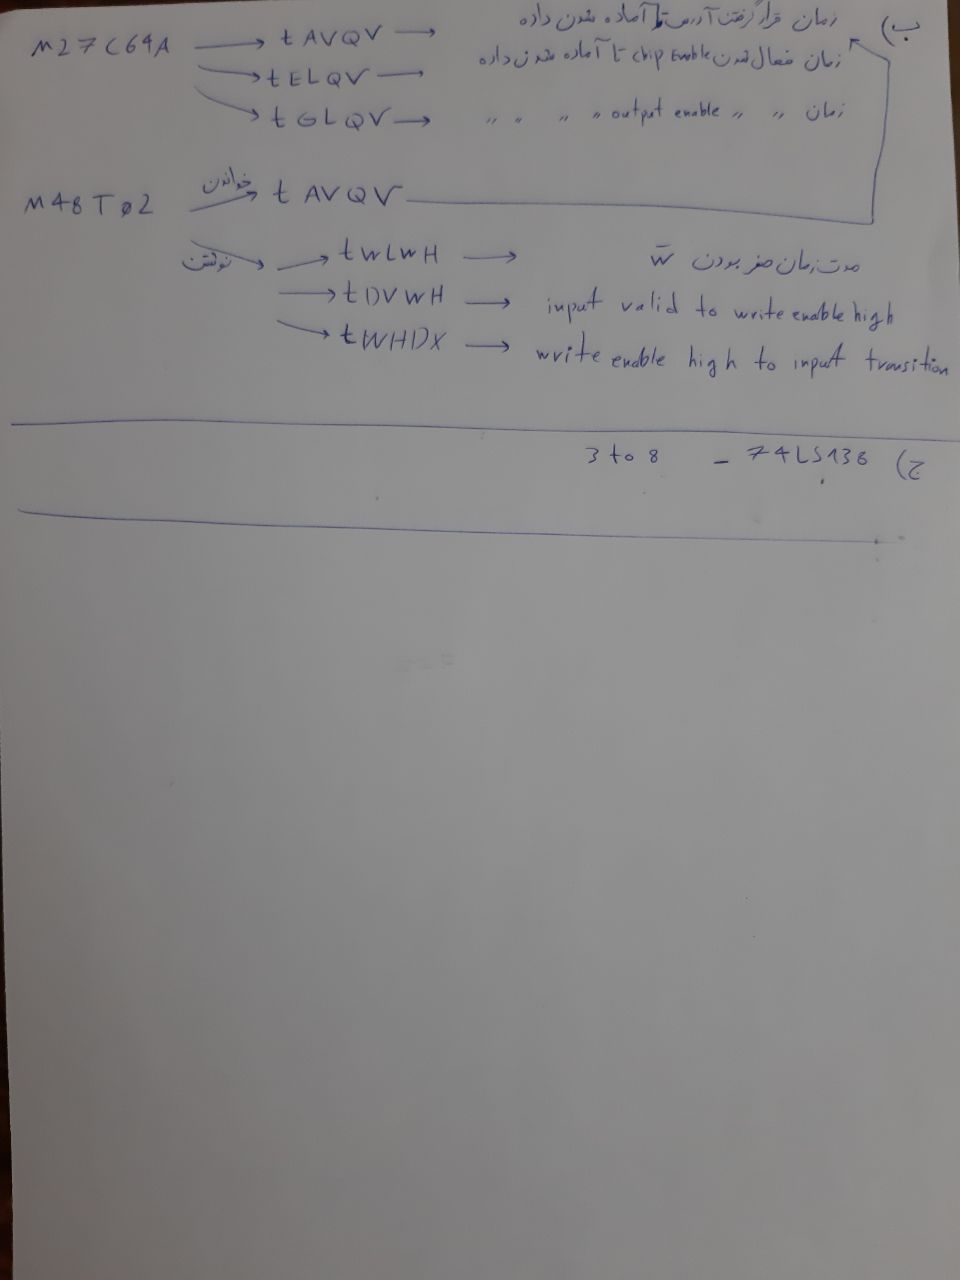 ب)
M27C64A → tAVQV → زمان قرار گرفتن آدرس تا آماده شدن داده
→ tELQV → زمان فعال شدن chip Enable تا آماده شدن داده
→ tGLQV → زمان " " output enable " " " "
M48Tø2 خواندن → tAVQV
نوشتن → tWLWH → مدت زمان صفر بودن W̄
→ tDVWH → input valid to write enable high
→ tWHDX → write enable high to input transition
ج) 74LS138 – 3 to 8